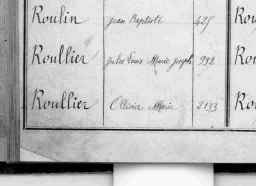 Roulin Jean Baptiste 425
Roullier Jules Louis Marie Joseph 292
Roullier Ollivier Marie 2133